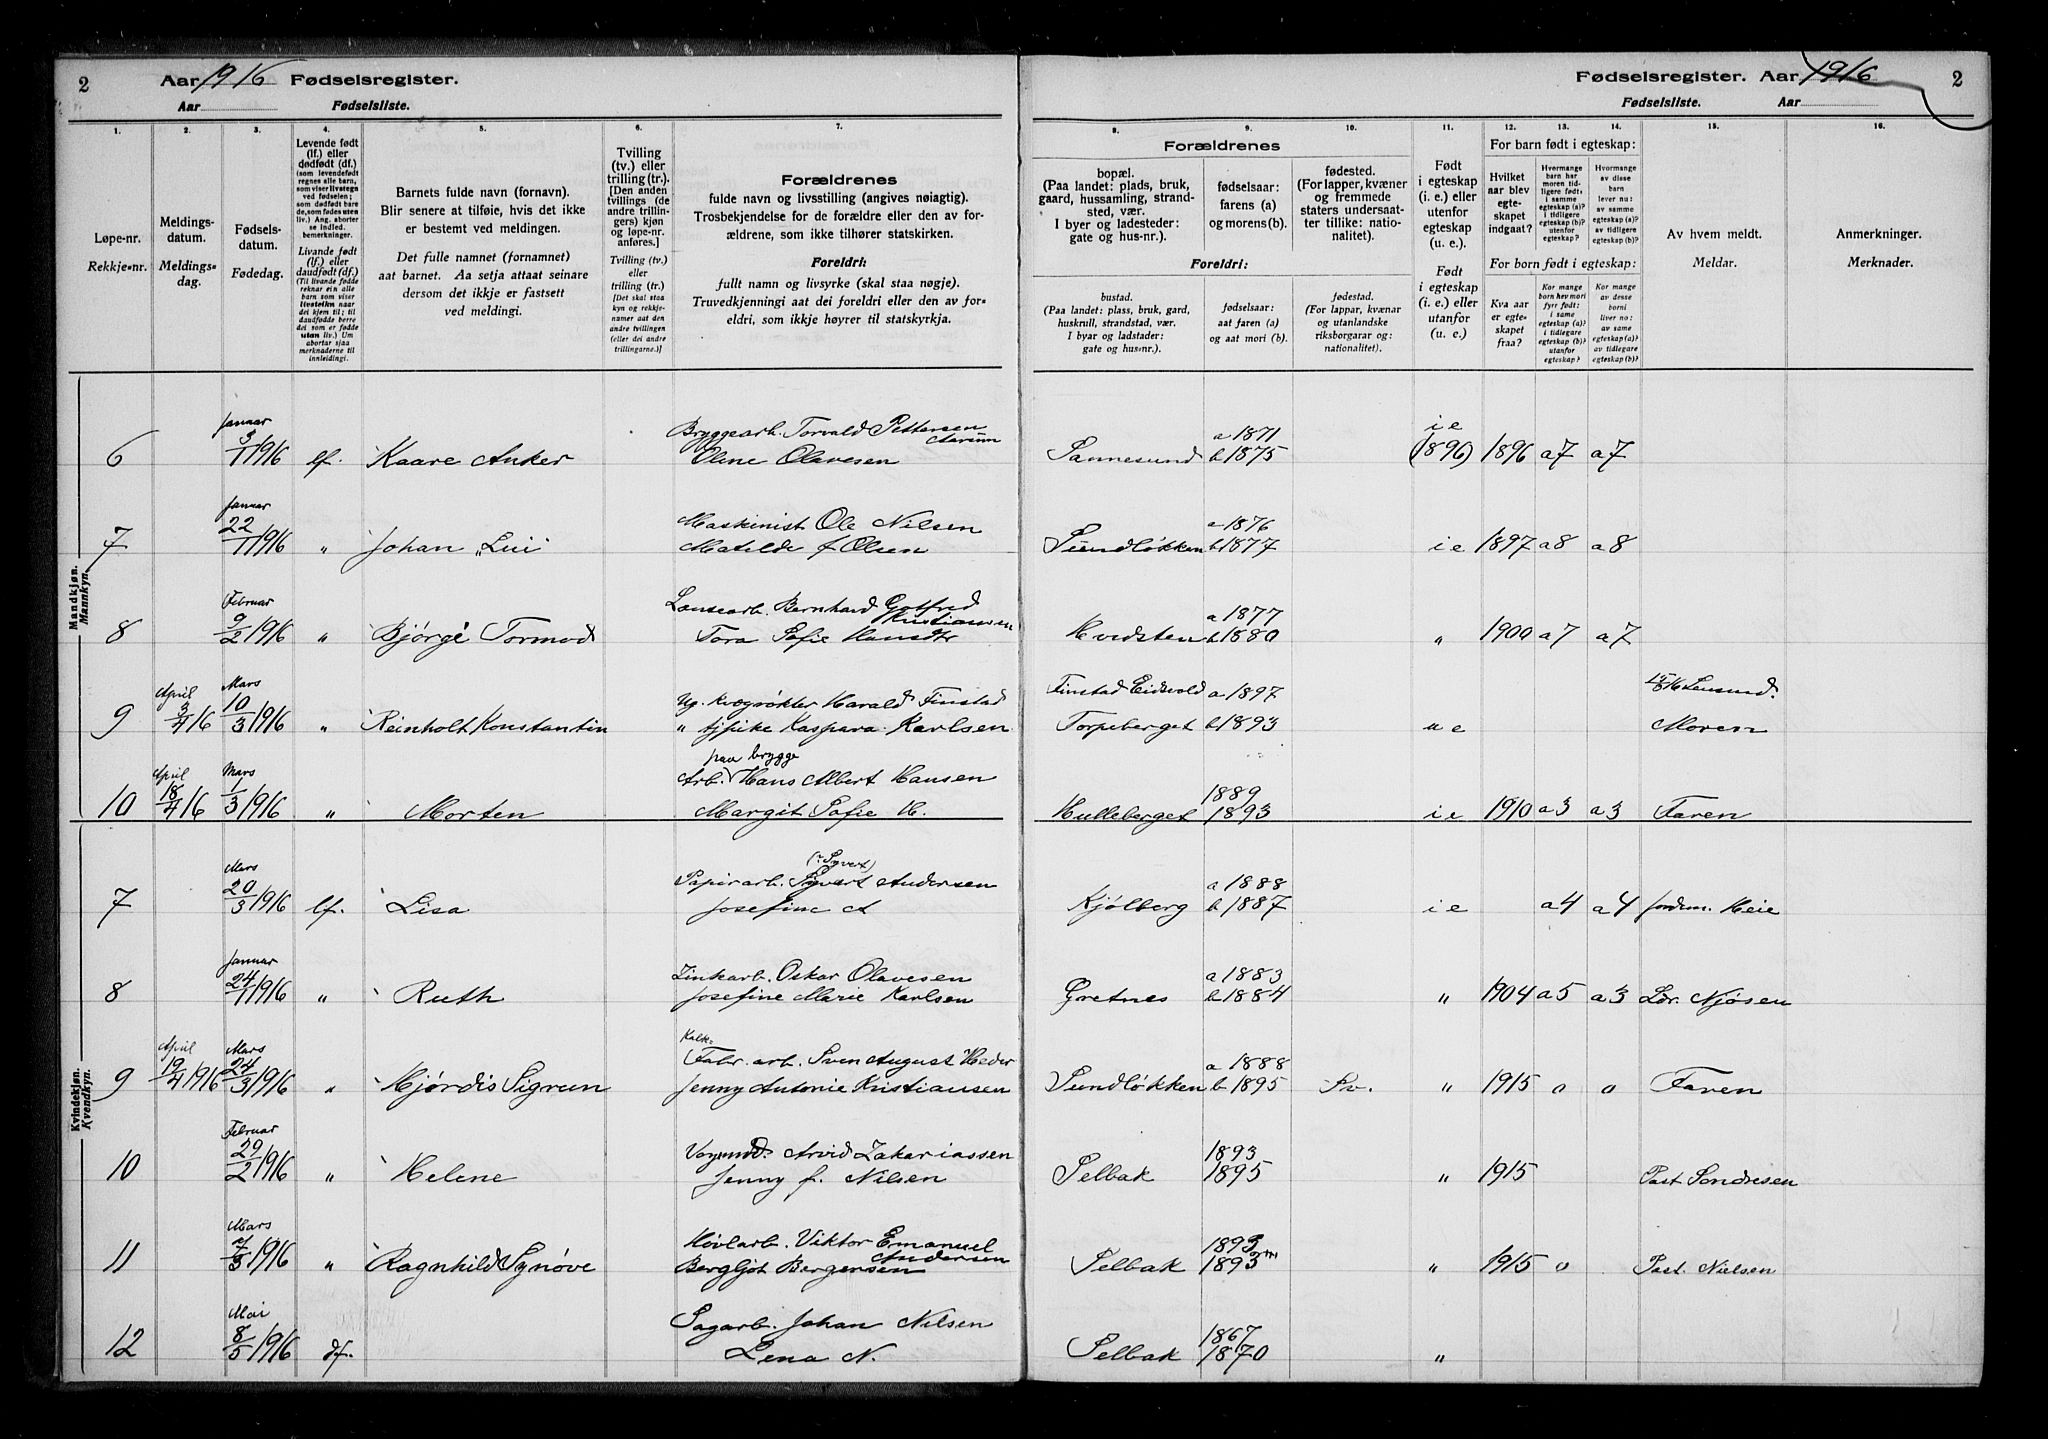 2 Aar 1916 Fødselsregister.
Aar Fødselsliste.
Fødselsregister. Aar 1916 2
Fødselsliste. Aar
1. 2. 3. 4. 5. 6. 7.
8. 9. 10. 11. 12. 13. 14. 15. 16.
Løpe-nr.
Rekkje-nr.
Meldings-
datum.
Meldings-
dag.
Fødsels-
datum.
Fødedag.
Levende født
(lf.) eller
dødfødt (df.)
(som levendefødt
regnes alle barn,
som viser livstegn
ved fødselen;
som dødfødt bare
de, som fødes uten
liv.) Ang. aborter
se indled.
bemerkninger.
Livande født
(lf.) eller
daudfødt (df.)
(Til livande fødde
reknar ein alle
barn som viser
livsteikn naar
dei kjem til; til
daudfødde berre
dei som er fødde
utan liv.) Um
abortar sjaa
merknaderne til
innleiding).
Barnets fulde navn (fornavn).
Blir senere at tilføie, hvis det ikke
er bestemt ved meldingen.
Det fulle namnet (fornamnet)
aat barnet. Aa setja attaat seinare
dersom det ikkje er fastsett
ved meldingi.
Tvilling
(tv.) eller
trilling (tr.).
[Den anden
tvillings (de
andre trillin-
gers) kjøn
og løpe-nr.
anføres.]
Tvilling (tv.)
eller
trilling (tr.)
[Det skal staa
kyn og rekkje-
numer aat den
andre tvillingen
(eller dei andre
trillingarne.)]
Forældrenes
fulde navn og livsstilling (angives nøiagtig).
Trosbekjendelse for de forældre eller den av for-
ældrene, som ikke tilhører statskirken.
Foreldri:
fullt namn og livsyrke (skal staa nøgje).
Truvedkjenningi aat dei foreldri eller den av for-
eldri, som ikkje høyrer til statskyrkja.
Forældrenes
bopæl.
(Paa landet: plads, bruk,
gaard, hussamling, strand-
sted, vær.
I byer og ladesteder:
gate og hus-nr.).
fødselsaar:
farens (a)
og morens (b).
fødested.
(For lapper, kvæner
og fremmede
staters undersaat-
ter tillike: natio-
nalitet).
Foreldri:
bustad.
(Paa landet: plass, bruk, gard,
huskrull, strandstad, vær.
I byar og ladstader:
gate og hus-nr.).
fødselsaar:
aat faren (a)
og aat mori (b).
fødestad.
(For lappar, kvænar
og utanlandske
riksborgarar og:
nationalitet).
Født
i egteskap
(i. e.) eller
utenfor
egteskap
(u. e.).
Født
i egteskap
(i. e.) eller
utanfor
(u. e.)
For barn født i egteskap:
Hvilket
aar blev
egte-
skapet
indgaat?
Hvormange
barn har
moren tid-
ligere født:
i samme
egteskap (a)?
i tidligere
egteskap (b)?
utenfor
egteskap?
Hvormange
av disse
barn
lever nu:
av samme
egteskap (a)?
av tidligere
egteskap (b)?
For born født i egteskap:
Kva aar
er egte-
skapet
fraa?
Kor mange
born hev mori
fyrr født:
i same
egteskap (a)?
i tidlegare
egteskap (b)?
utanfor
egteskap?
Kor mange
av desse
borni
liver no:
av same
egteskap (a)?
av tidlegare
egteskap (b)?
Av hvem meldt.
Meldar.
Anmerkninger.
Merknader.
Mandkjøn.
Mannkyn.
6 Januar 3/1 1916 lf. Kaare Anker Bryggearb. Torvald Pettersen
Olene Olavesen Sannesund a 1871 b 1875 i e (1896) 1896 a 7 a 7
7 Januar 22/1 1916 " Johan Maskinist Ole Nilsen
Matilde f. Olsen Sundløkken a 1876 b 1877 i e 1897 a 8 a 8
8 Februar 9/2 1916 " Bjørge Tormod Lænsearb. Bernhard Gotfred Kristiansen
Tora Sofie Hansdtr Hvidsten a 1877 b 1880 " 1900 a 7 a 7
9 April 3/4 16 Mars 10/3 1916 " Reinholt Konstantin Ug. kvægrøkter Harald Finstad
" tjpike Kaspara Karlsen Finstad Eidsvold a 1897
Torpeberget b 1893 u e Moren
10 April 18/4 16 Mars 1/3 1916 " Morten Arb. paa brygge Hans Albert Hansen
Margit Sofie H. Hulleberget 1889 1893 i e 1910 a 3 a 3 Faren
Kvindekjøn.
Kvendkyn.
7 Mars 20/3 1916 lf. Lisa Papirarb. Syvert (: Syvert) Andersen
Josefine A Kjølberg a 1888 b 1887 i e a 4 a 4 Jordm. Heie
8 Januar 24/1 1916 " Ruth Zinkarb. Oskar Olavesen
Josefine Marie Karlsen Gretnes a 1883 b 1884 " 1904 a 5 a 3 Lær. Njøsen
9 April 19/4 1916 Mars 24/3 1916 " Hjørdis Sigrun Kalk- Fabr. arb. Sven August Heder
Jenny Antonie Kristiansen Sundløkken a 1888 b 1895 Sv. " 1915 o o Faren
10 Februar 29/2 1916 " Helene Arvid Zakariassen
Jenny f. Nilsen Selbak 1893 1895 " 1915 Past. Sondresen
11 Mars 1916 " Ragnhild Synøve Høvlarb. Viktor Emanuel Andersen
Bergljot Bergersen Selbak 1893 1893 " 1915 o Past. Nielsen
12 Mai 8/5 1916 df. Sagarb. Johan Nilsen
Lena N. Selbak 1867 1870 "